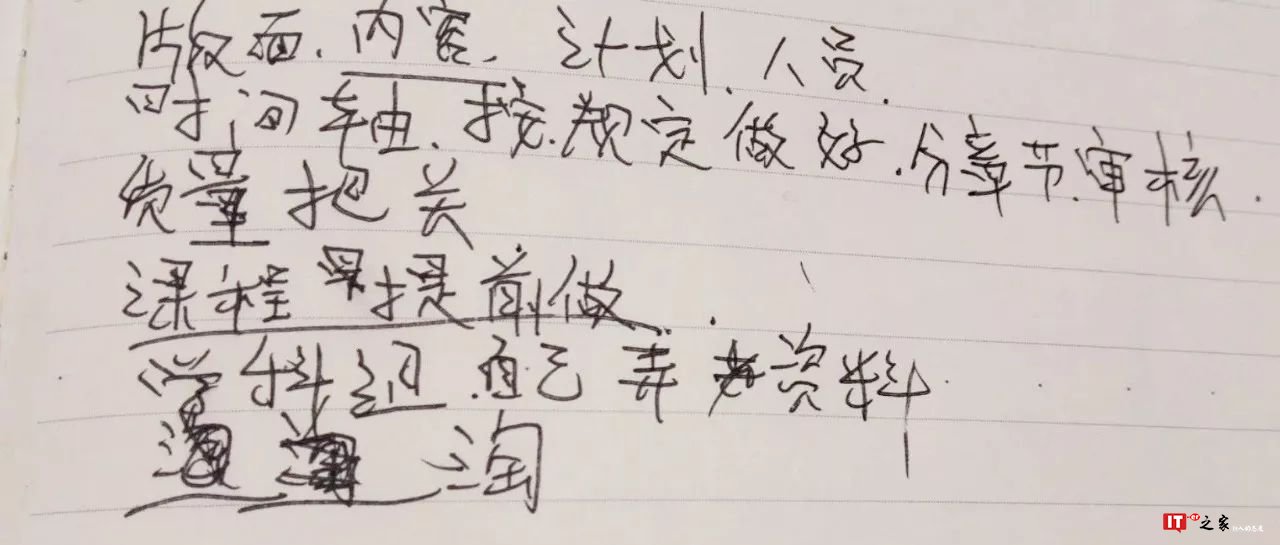 版面、内容、计划、人员、
时间轴、按规定做好、分章节审核.
质量把关
课程提前做
学科组自己弄资料
淘
IT之家